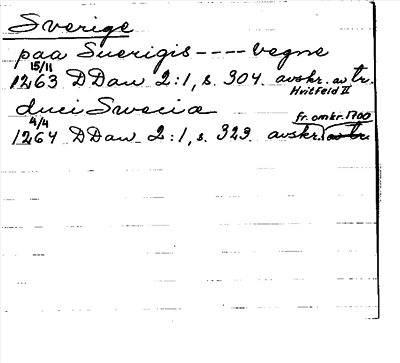 Sverige
paa Suerigis ---- vegne
15/11
1263 DDan 2:1, s. 304. avskr. av tr.
Hvitfeld II
duci Swecia
4/4 fr. omkr. 1700
1264 DDan 2:1, s. 323. avskr. av tr.